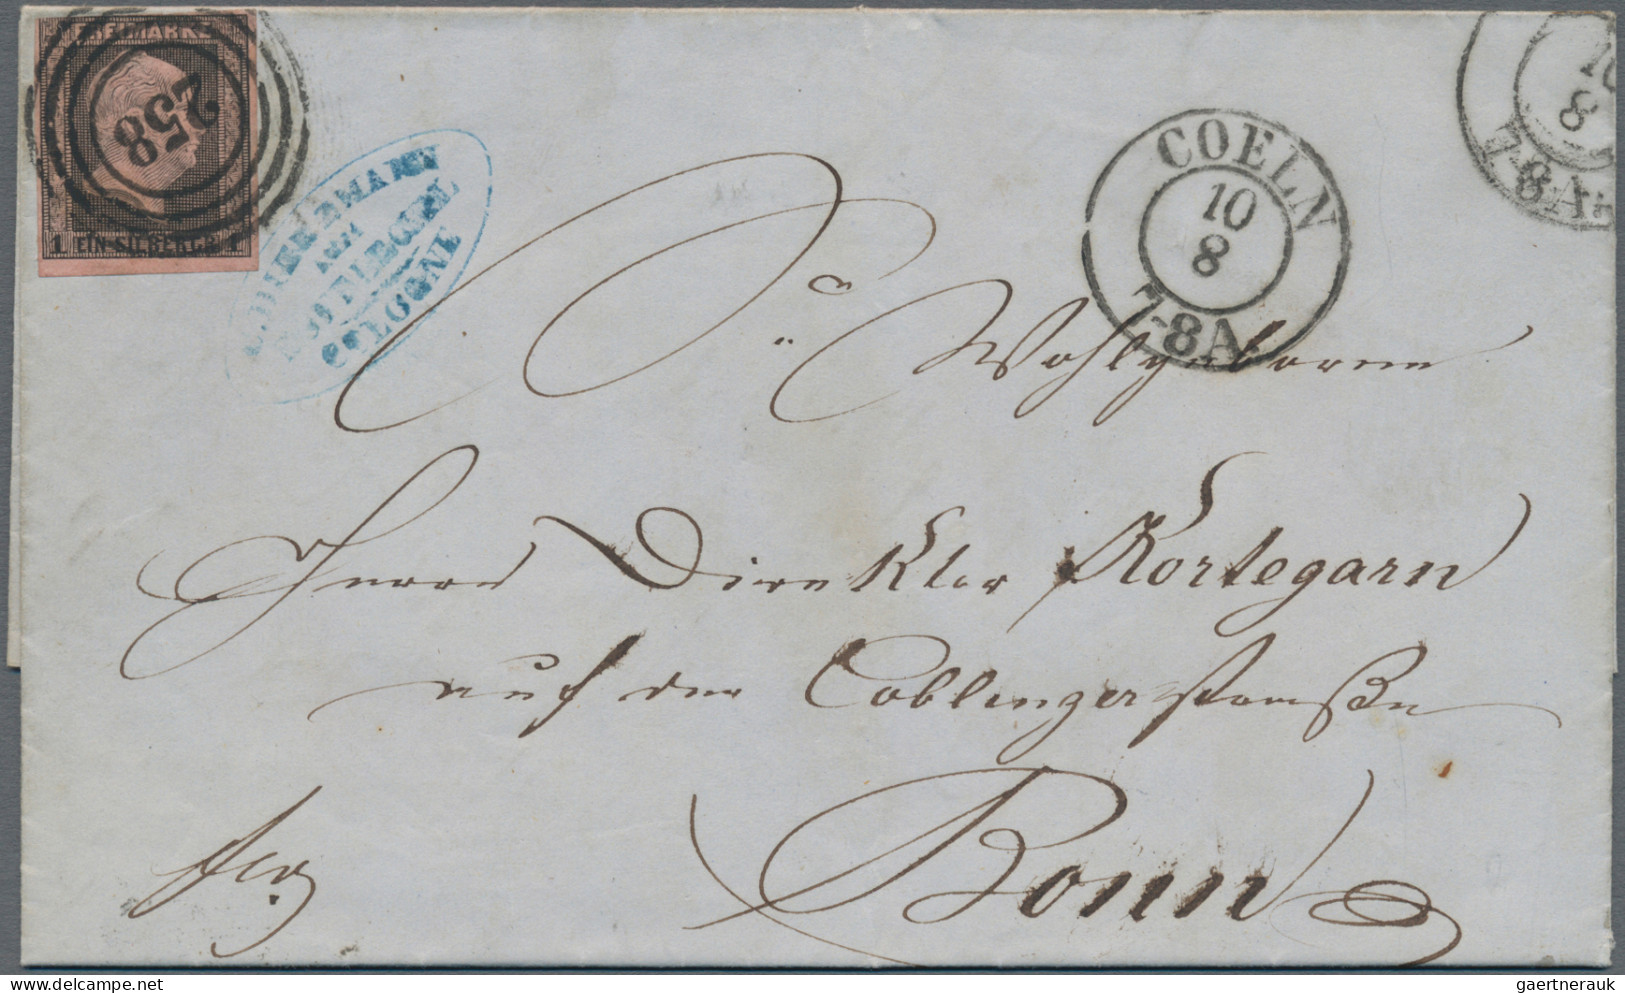 FREIMARKE
258
1 EIN SILBERGR. 1
COLOGNE
COELN
10
8
7-8A.
10
8
7-8A.
Sr Wohlgeboren
Herrn Direktor Kortegarn
auf der Coblenzerstraße
Bonn
frco.
gaertnerauk